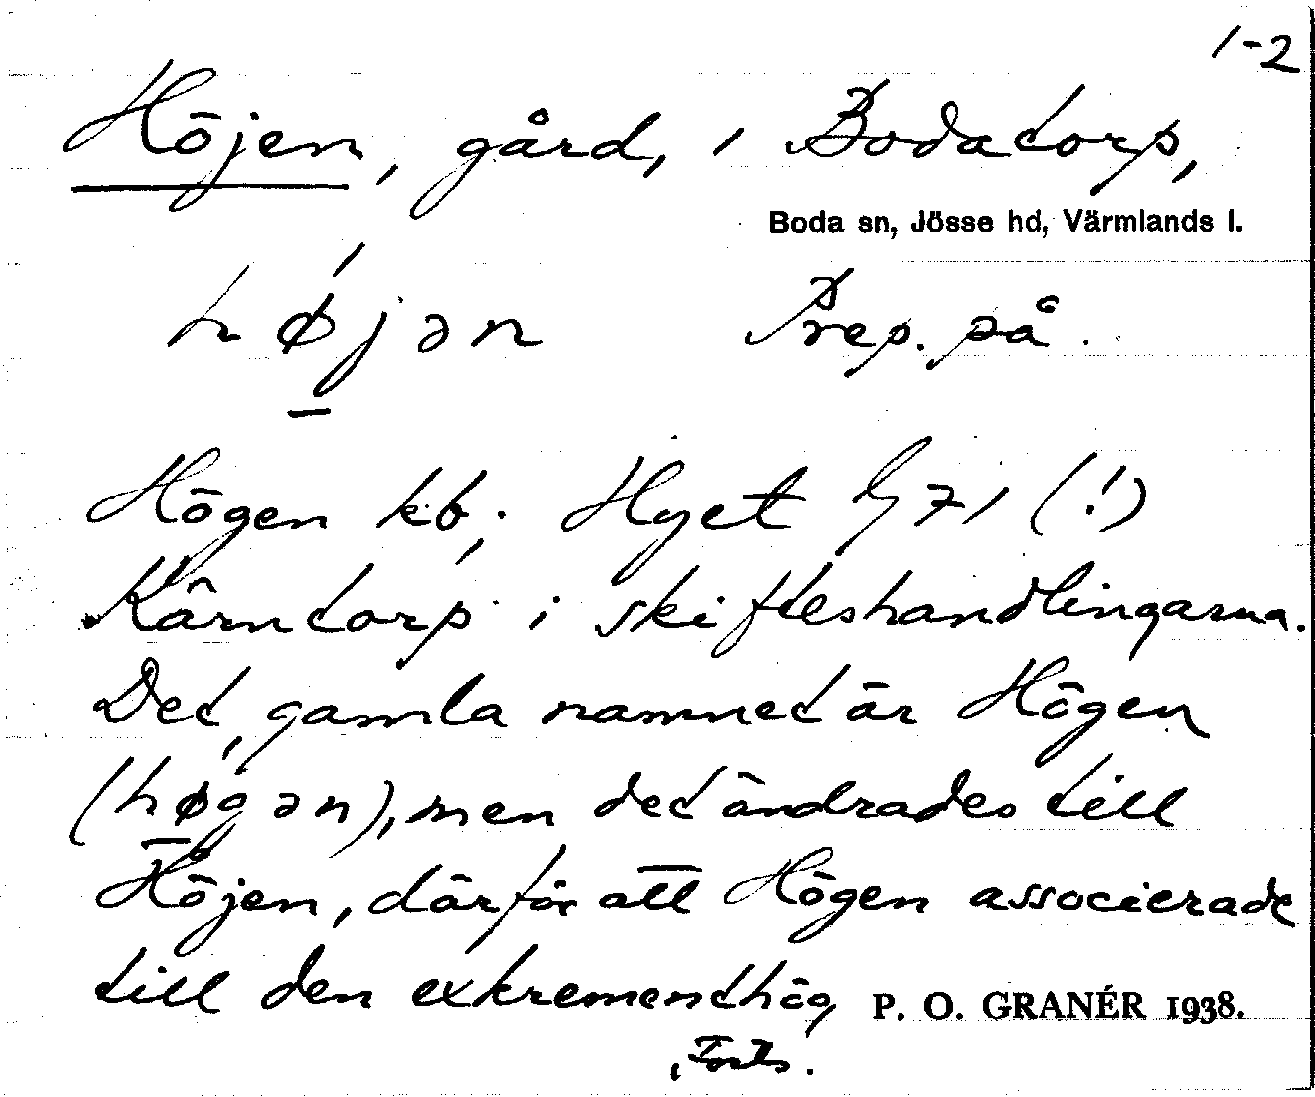 1-2
Höjen, gård, i Bodatorp,
Boda sn, Jösse hd, Värmlands l.
højən Prep. på.
Högen kb; Hyet G 71 (!)
Kärntorp i skifteshandlingarna.
Det gamla namnet är Högen
(høgən), men det ändrades till
Höjen, därför att Högen associerade
till den exkrementhög
P. O. GRANÉR 1938.
Forts.